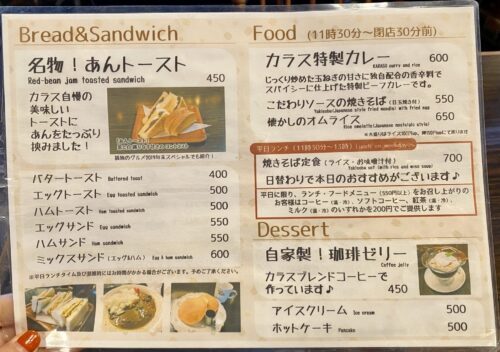 Bread&Sandwich
名物！あんトースト
Red-bean jam toasted sandwich 450
カラス自慢の
美味しい
トーストに
あんをたっぷり
挟みました！
バタートースト Buttered toast 400
エッグトースト Egg toasted sandwich 500
ハムトースト Ham toasted sandwich 500
エッグサンド Egg sandwich 550
ハムサンド Ham sandwich 550
ミックスサンド (エッグ&ハム) Egg & ham sandwich 600
Food (11時30分〜閉店30分前)
カラス特製カレー 600
KARASU curry and rice
じっくり炒めた玉ねぎの甘さに独自配合の香辛料で
スパイシーに仕上げた特製ビーフカレーです。
こだわりソースの焼きそば (目玉焼き付) 550
懐かしのオムライス 650
平日ランチ (11時30分〜13時)
焼きそば定食 (ライス・お味噌汁付) 700
日替わりで本日のおすすめがございます♪
平日に限り、ランチ・フードメニュー(550円以上)をお召し上がりの
お客様はコーヒー(温・冷)、ソフトコーヒー、紅茶(温・冷)、
ミルク(温・冷)のいずれかを200円でご提供します
Dessert
自家製！珈琲ゼリー
Coffee jelly
カラスブレンドコーヒーで
作っています♪ 450
アイスクリーム Ice cream 500
ホットケーキ Pancake 500